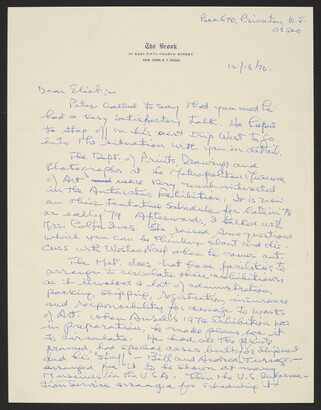 Box 670, Princeton, N.J.
08540
The Brook
111 EAST FIFTY-FOURTH STREET
NEW YORK, N.Y. 10022
12/16/76.
Dear Eliot:-
Peter called to say that you and he
had a very satisfactory talk. He hopes
to stop off on his next trip West to go
into the situation with you in detail.
The Dept. of Prints, Drawings and
Photographs at the Metropolitan Museum
of Art were very much interested
in the Antarctic Exhibition, so is now
on their tentative schedule for late in '78
or early '79. Afterwards I talked with
Mrs. She raised some questions
which you can be thinking about and dis-
cuss with Weston Naef when he comes out.
The Met. does not have facilities to
arrange to circulate their exhibitions
as it involves a lot of administration,
packing, shipping, registration, insurance
and responsibility for damage to works
of Art. When Ansel's 1974 Exhibition was
in preparation, he made plans for it
to circulate. He had all the prints
framed, had special cases built for shipment
and his "staff" - Bill and Andrea Turnage -
arranged for it to be shown at many
Museums in the U.S.A. Then the U.S. Informa-
tion Service arranged for scheduling &